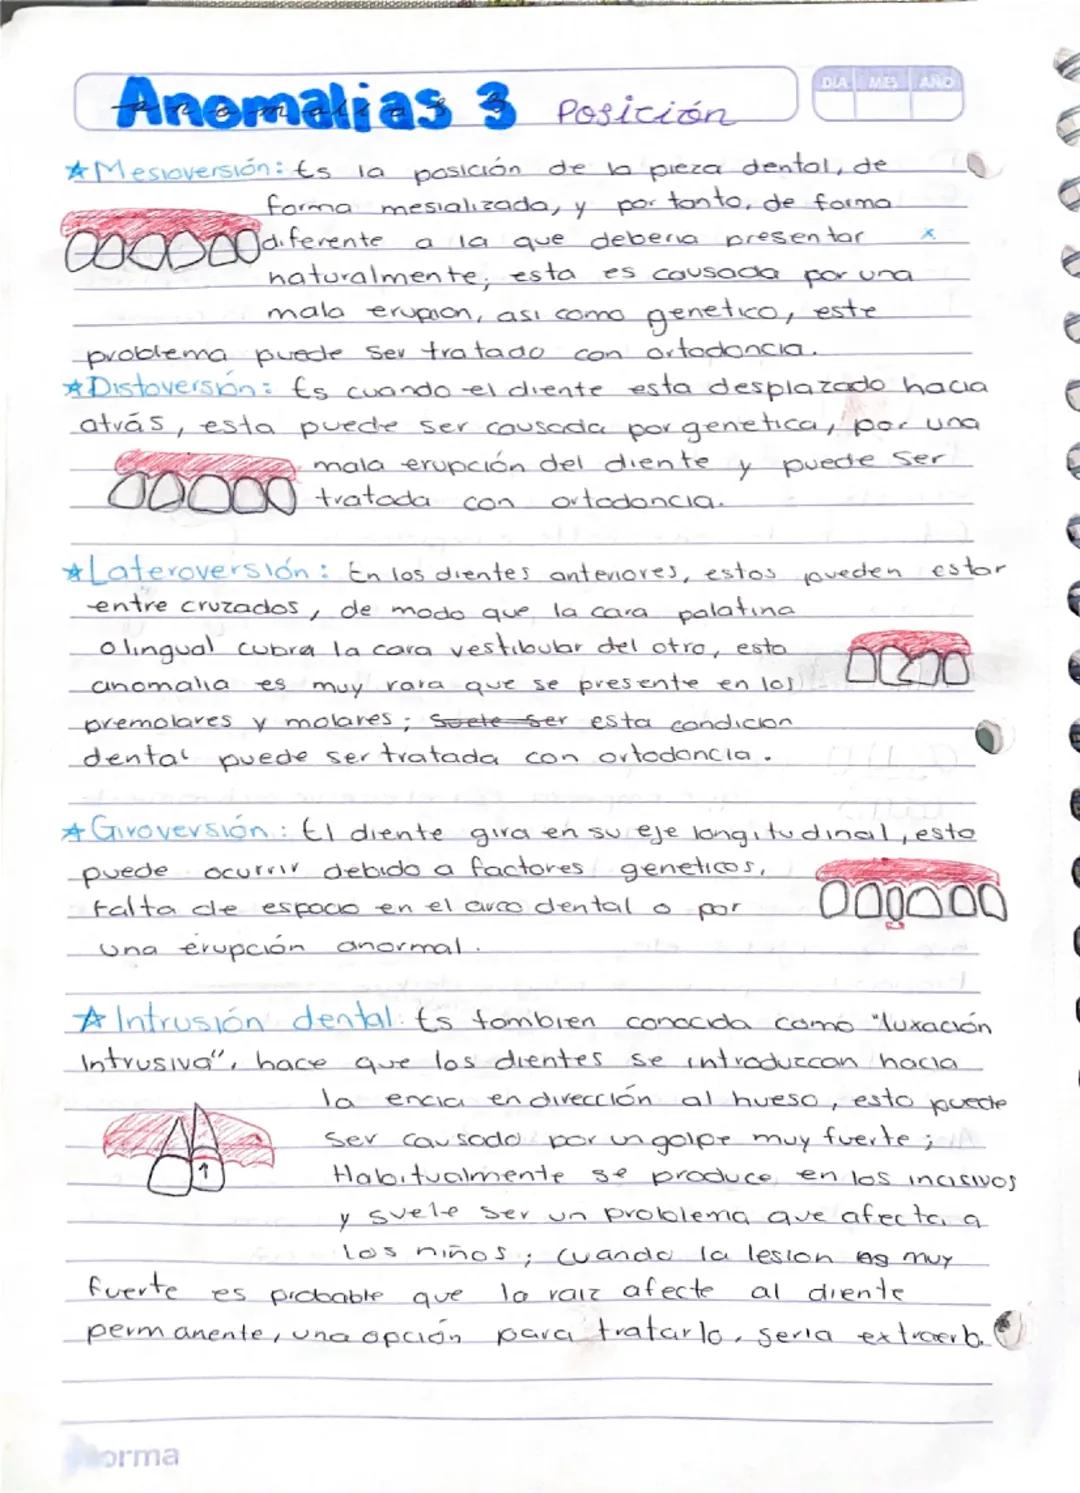 Anomalias 3 Posición
DIA MES AÑO
★Mesioversión: Es la posición de la pieza dental, de
forma mesializada, y por tanto, de forma
diferente a la que deberia presentar x
naturalmente; esta es causada por una
mala erupcion, asi como genetico, este
problema puede ser tratado con ortodoncia.
★Distoversión: Es cuando el diente esta desplazado hacia
atrás, esta puede ser causada por genetica, por una
mala erupción del diente y puede ser
tratada con ortodoncia.
★Lateroversión: En los dientes anteriores, estos pueden estar
entre cruzados, de modo que la cara palatina
o lingual cubra la cara vestibular del otro, esta
anomalia es muy rara que se presente en los
premolares y molares; Suele ser esta condicion
dental puede ser tratada con ortodoncia.
★Giroversión: El diente gira en su eje longitudinal, esto
puede ocurrir debido a factores geneticos,
falta de espacio en el arco dental o por
una erupción anormal.
★Intrusión dental: Es tambien conocida como "luxación
Intrusiva", hace que los dientes se introduzcan hacia
la encia en dirección al hueso, esto puede
ser causado por un golpe muy fuerte;
Habitualmente se produce en los incisivos
y suele ser un problema que afecta a
los niños; cuando la lesion es muy
fuerte es probable que la raiz afecte al diente
permanente, una opción para tratarlo, seria extraerlo.
norma